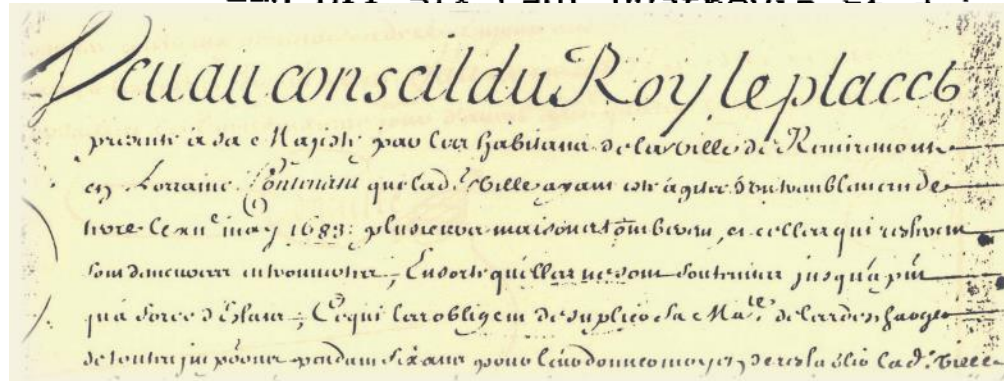 Veu au conseil du Roy le placet
presenté à sa Majesté par les habitans de la ville de Remiremont
en Lorraine Contenant que lad.e ville ayant esté agitée d'un tremblement de
terre le xii.e may 1683: plusieurs maisons tomberent, et celles qui resterent
sont demeurées entrouvertes; En sorte qu'elles ne sont soutenues jusqu'à pnt
qu'à force d'Estaies; Ce qui les obligent de suplier sa Ma.té de les descharger
de toutes impōons pendant six ans pour leur donner moyen de restablir lad. ville